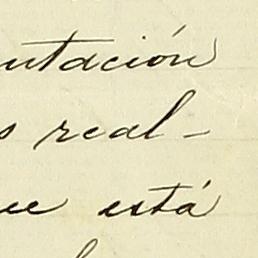 utación
s real-
ue está